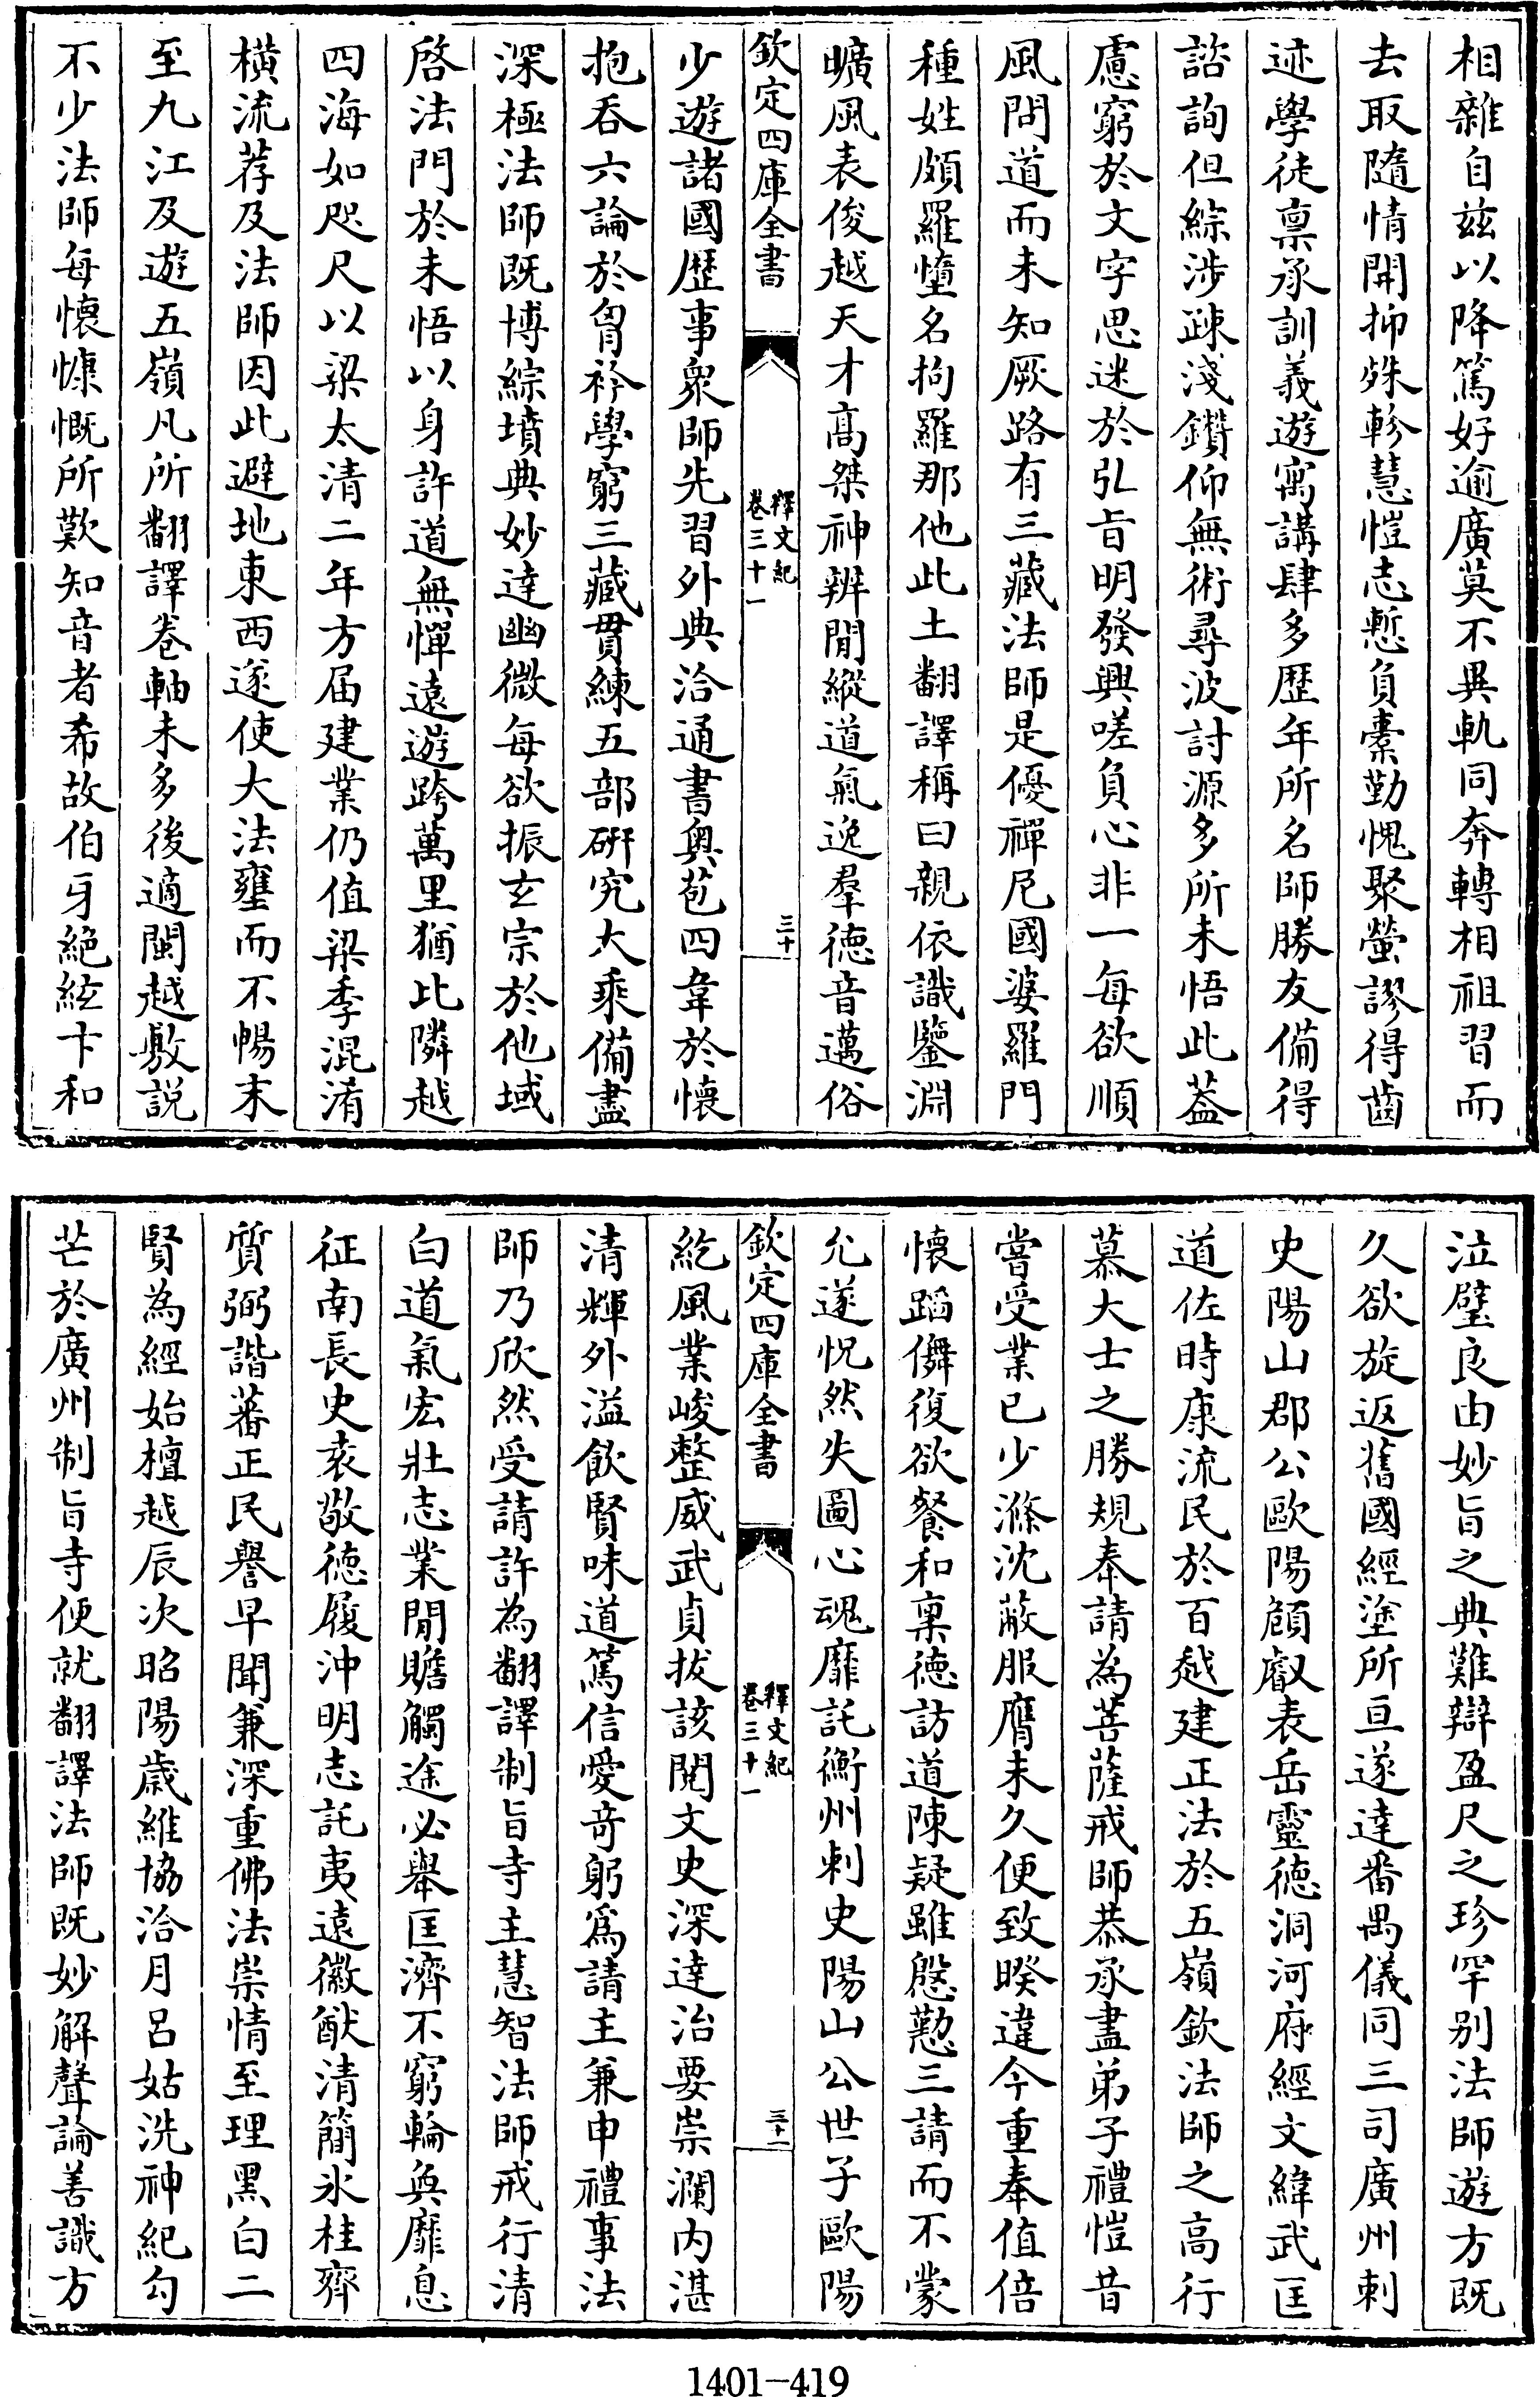 相雜自茲以降篤好逾廣莫不異軌同奔轉相祖習而
去取隨情開抑殊軫慧愷志慙負橐勤愧聚螢謬得齒
迹學徒稟承訓義遊寓講肆多歴年所名師勝友備得
諮詢但綜涉疎淺鑽仰無術尋波討源多所未悟此葢
慮窮於文字思迷於弘旨明發興嗟負心非一每欲順
風問道而未知厥路有三藏法師是優禪尼國婆羅門
種姓頗羅憻名拘羅那他此土翻譯稱曰親依識鑒淵
曠風表俊越天才高桀神辨閒縱道氣逸羣德音邁俗
欽定四庫全書
釋文紀
卷三十一
三十
少遊諸國歴事衆師先習外典洽通書奥苞四韋於懷
抱吞六論於胷衿學窮三藏貫練五部研究大乘備盡
深極法師既博綜墳典妙達幽微每欲振玄宗於他域
啓法門於未悟以身許道無憚遠遊跨萬里猶比隣越
四海如咫尺以梁太清二年方届建業仍值梁季混淆
橫流荐及法師因此避地東西遂使大法壅而不暢末
至九江及遊五嶺凡所翻譯卷軸未多後適閩越敷説
不少法師每懷慷慨所歎知音者希故伯牙絶絃卞和
泣璧良由妙旨之典難辯盈尺之珍罕别法師遊方既
久欲旋返舊國經塗所亘遂達番禺儀同三司廣州刺
史陽山郡公歐陽頠叡表岳靈德洞河府經文緯武匡
道佐時康流民於百越建正法於五嶺欽法師之高行
慕大士之勝規奉請為菩薩戒師恭承盡弟子禮愷昔
嘗受業已少滌沈蔽服膺未久便致睽違今重奉值倍
懷蹈儛復欲餐和稟德訪道陳疑雖慇懃三請而不蒙
允遂怳然失圖心魂靡託衡州刺史陽山公世子歐陽
欽定四庫全書
釋文紀
卷三十一
三十一
紇風業峻整威武貞拔該閲文史深達治要崇瀾内湛
清輝外溢飲賢味道篤信愛竒躬爲請主兼申禮事法
師乃欣然受請許為翻譯制旨寺主慧智法師戒行清
白道氣宏壯志業閒贍觸途必舉匡濟不窮輪奐靡息
征南長史袁敬德履沖明志託夷遠徽猷清簡氷桂齊
質弼諧蕃正民譽早聞兼深重佛法崇情至理黑白二
賢為經始檀越辰次昭陽歳維協洽月呂姑洗神紀勾
芒於廣州制旨寺便就翻譯法師既妙解聲論善識方
1401-419